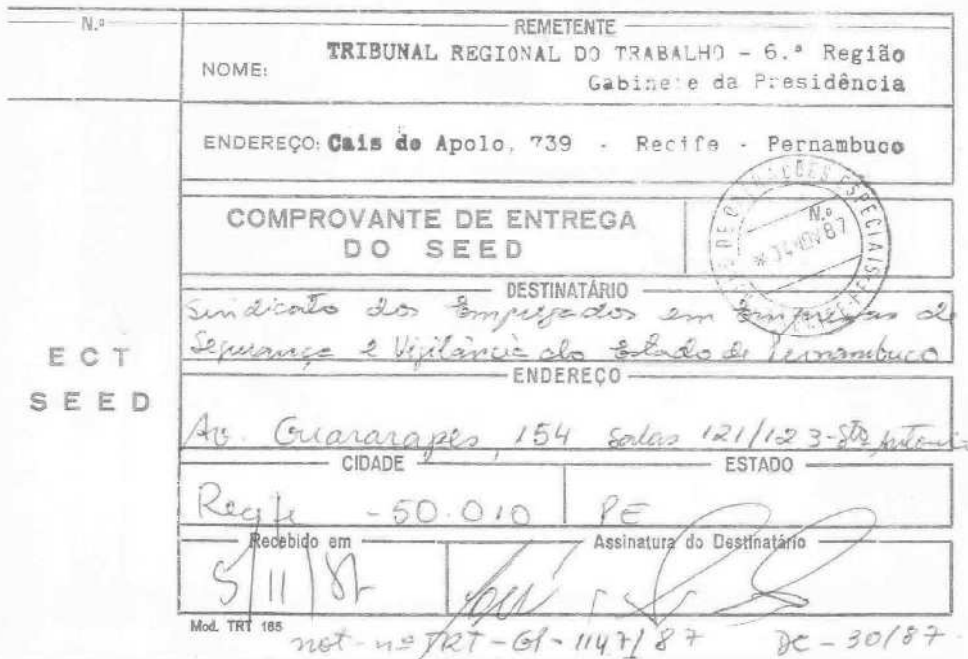 N.º
REMETENTE
NOME: TRIBUNAL REGIONAL DO TRABALHO - 6.ª Região
Gabinete da Presidência
ENDEREÇO: Cais do Apolo, 739 - Recife - Pernambuco
COMPROVANTE DE ENTREGA
DO SEED
N.º
NOV 87
ESPECIAIS
DESTINATÁRIO
Sindicato dos Empregados em Empresas de
Segurança e Vigilância do Estado de Pernambuco
ECT
SEED
ENDEREÇO
Av. Guararapes, 154 Salas 121/123-Sto Antonio
CIDADE
ESTADO
Recife - 50.010
PE
Recebido em
Assinatura do Destinatário
5/11/87
Mod. TRT 165
not-nº TRT-GP-1147/87 DC-30/87